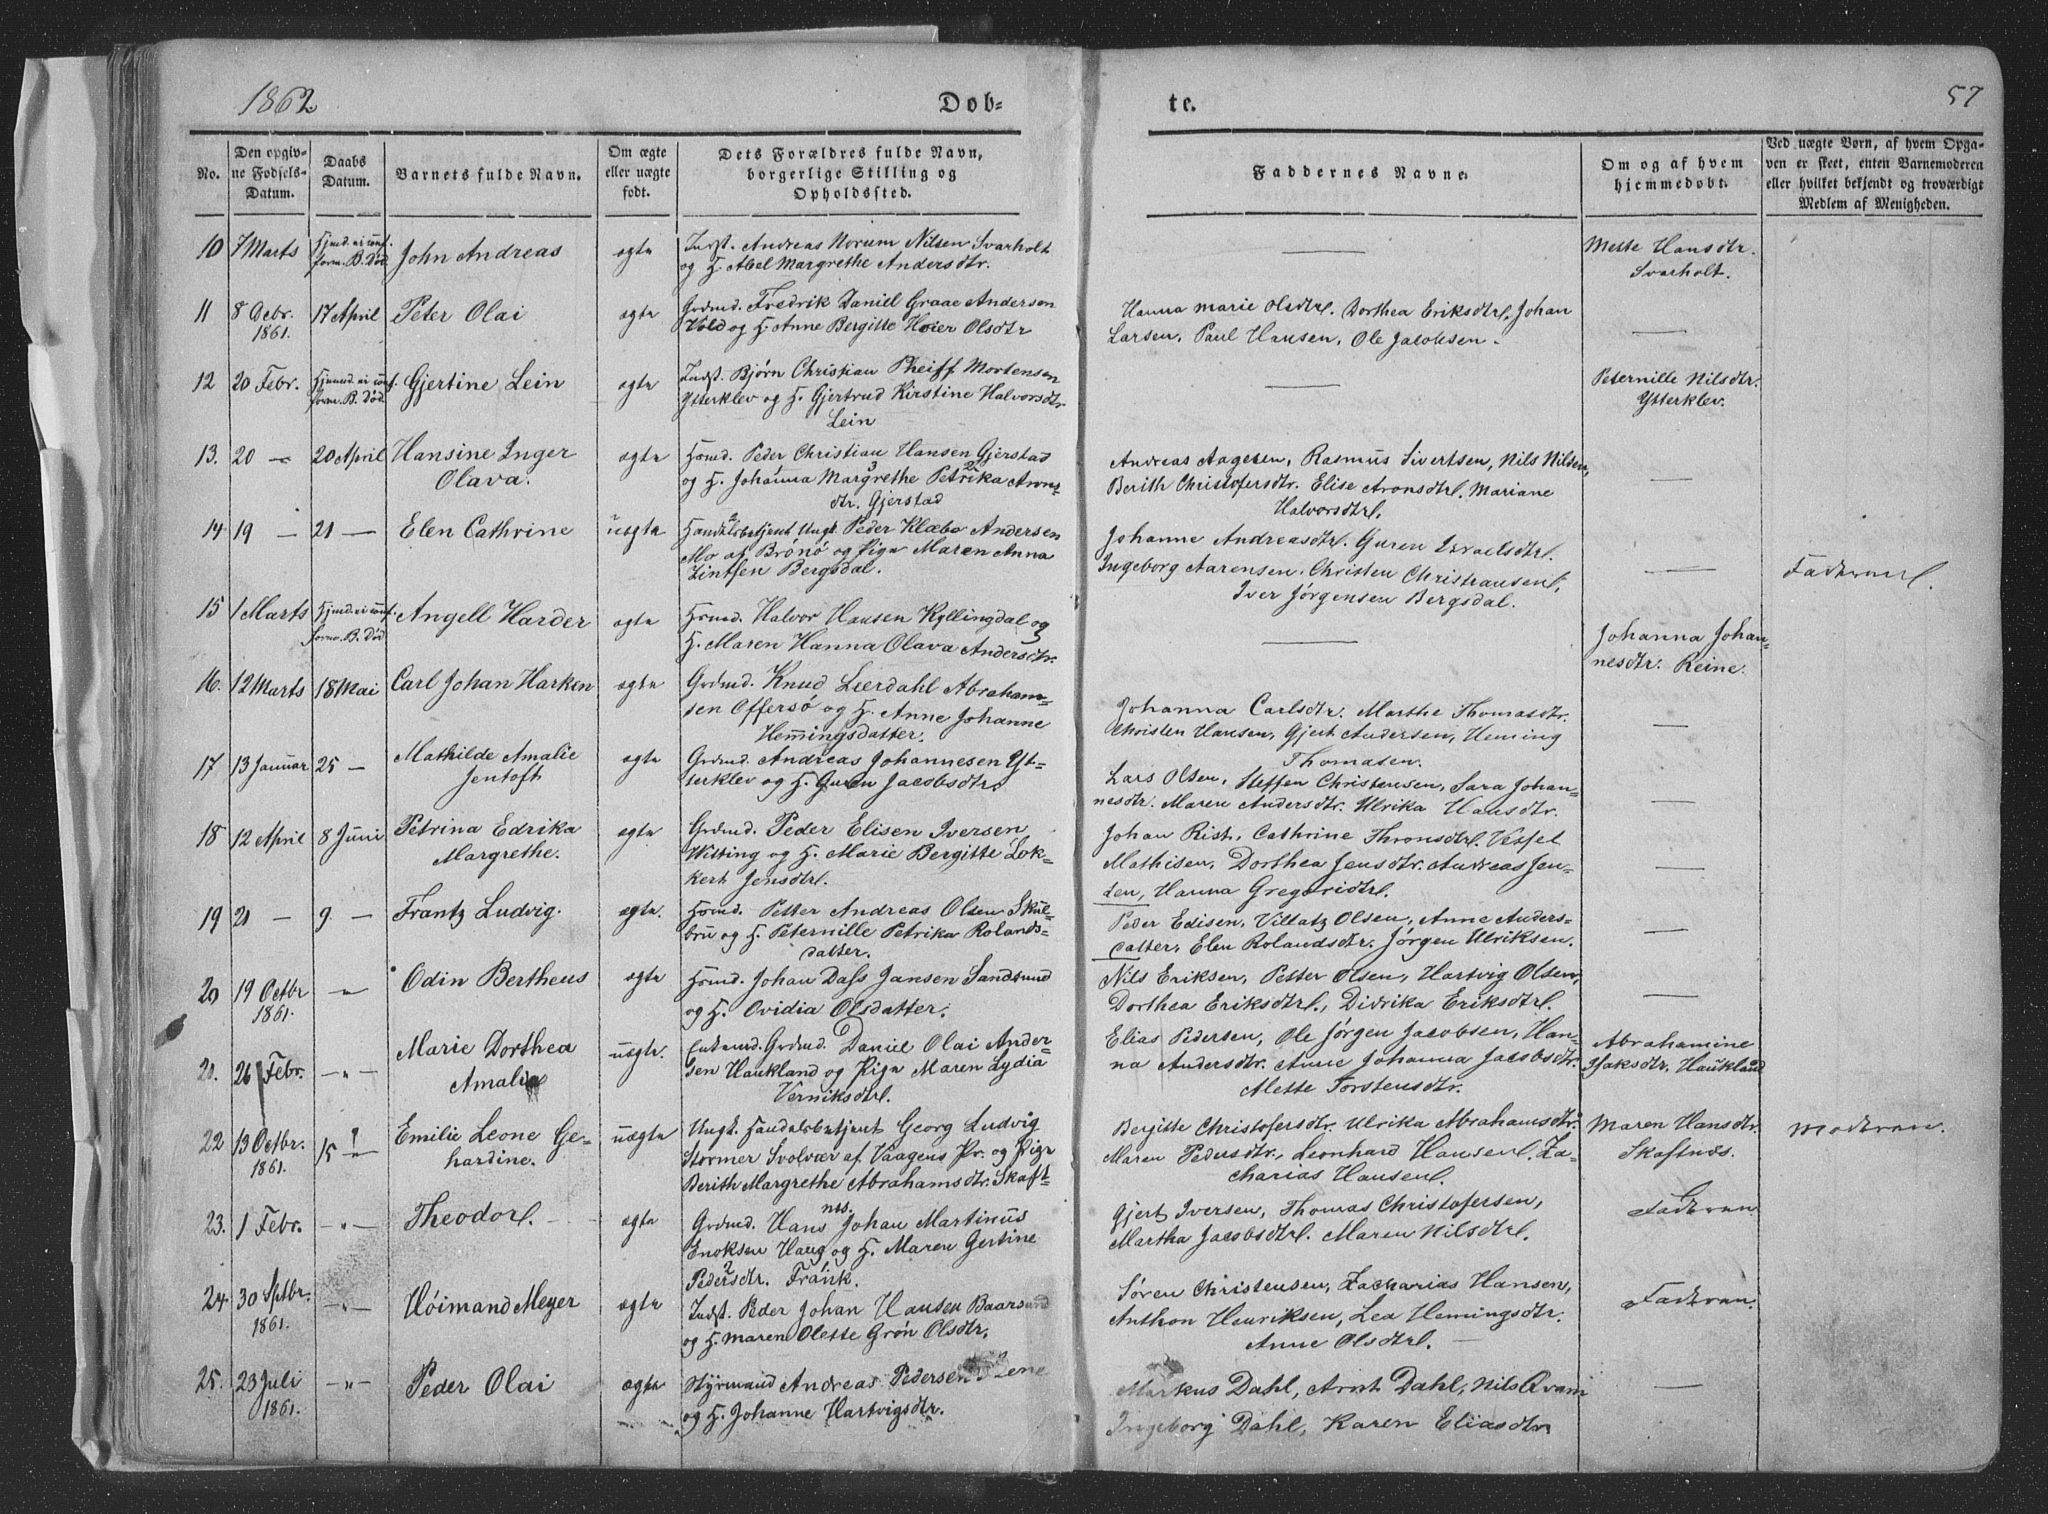 1862.
Dob-
te.
57
No.
Den opgiv-
ne Fodsels-
Datum.
Daabs
Datum.
Barnets fulde Navn.
Om ægte
eller uægte
født.
Dets Forældres fulde Navn,
borgerlige Stilling og
Opholdssted.
Faddernes Navne.
Om og af hvem
hjemmedobt.
Ved uægte Born, af hvem Opga-
ven er skeet, enten Barnemoderen
eller hvilket bekjendt og troværdigt
Medlem af Menigheden.
10 7 Marts Hjmd. ei conf. John Andreas ægte Indst. Andreas Norum Nilsen Svarholt Mette Hansdtr.
forin. B. Død og H. Abel Margrethe Andersdtr. Svarholt.
11 8 Octbr. 17 April Peter Olai ægte Grdmd. Fredrik Daniel Graae Andersen Hanna Marie Olsdtr. Dorthea Eriksdtr. Johan —
1861. Vold og H. Anne Bergitte Høier Olsdtr Larsen, Paul Hansen, Ole Jacobsen.
12 20 Febr. Hjmmd. ei conf. Gjertine Lein ægte Indst. Bjørn Christian Pheiff Mortensen Peternille Nilsdtr.
forin. B. Død Ytterklev og H. Gjertrud Kirstine Halvorsdtr Ytterklev.
Lein
13. 20 — 20 April Hansine Inger ægte Husmd. Peder Christian Hansen Gjerstad Andreas Aagesen, Rasmus Sivertsen, Nils Nilsen, —
Olava. og H. Johanna Margrethe Petrika Arons- Berith Christofersdtr. Elise Aronsdtr. Mariane
dtr. Gjerstad Halvorsdtr.
14 19 — 21 — Elen Cathrine uægte Handelsbetjent Ungk. Peder Klæbo Andersen Johanne Andreasdtr. Guren Israelsdtr. — Faderen.
Mo af Brønø og Pige Maren Anna Ingeborg Aarensen, Christen Christiansen,
Lintsen Bergsdal. Iver Jørgensen Bergsdal.
15 1 Marts Hjmd. ei conf. Angell Harder ægte Husmd. Halvor Hansen Kyllingdal og Johanna Johan-
forin. B. Død H. Maren Hanna Olava Andersdtr. nesdtr. Reine.
16. 12 Marts 18 Mai Carl Johan Harken ægte Grdmd. Knud Lierdahl Abraham- Johanna Carlsdtr. Marthe Thomasdtr. —
sen Offersø og H. Anne Johanne Christen Hansen, Gjert Andersen, Heming
Hemingsdatter. Thomasen.
17 13 Januar 25 — Mathilde Amalie ægte Grdmd. Andreas Johannesen Yt- Lars Olsen, Steffen Christensen, Sara Johan- —
Jentoft terklev og H. Guren Jacobsdtr. nesdtr. Maren Andersdtr. Ulrika Hansdtr.
18 12 April 8 Juni Petrina Edrika ægte Grdmd. Peder Elisen Iversen Johan Rist, Cathrine Thronsdtr. Vessel —
Margrethe. Witting og H. Marie Bergitte Lok- Mathisen, Dorthea Jensdtr. Andreas Jen-
kert Jensdtr. sen, Hanna Gregoridtr.
19 21 — 9. — Frantz Ludvig. ægte. Husmd. Petter Andreas Olsen Skul- Peder Edisen, Villatz Olsen, Anne Anders- —
bru og H. Peternille Petrika Rolands- datter, Elen Rolandsdtr. Jørgen Ulriksen.
datter.
20 19 Octbr — „ — Odin Bertheus ægte Husmd. Johan Dass Jansen Sandsund Nils Eriksen, Petter Olsen, Hartvig Olsen, —
1861. og H. Ovidia Olsdatter. Dorthea Eriksdtr., Didrika Eriksdtr.
21. 26 Febr. — „ — Marie Dorthea uægte. Enkemd. Grdmd. Daniel Olai Ander- Elias Pedersen, Ole Jørgen Jacobsen, Han- Abrahamine
Amalia sen Haukland og Pige Maren Lydia na Andersdtr. Anne Johanna Jacobsdtr. Isaksdtr. Haukland
Verniksdtr. Mette Torstensdtr.
22 13 Octbr. 15 ? Emilie Leone Ge- uægte Ungk. Handelsbetjent Georg Ludvig Bergitte Christofersdtr. Ulrika Abrahamsdtr. Maren Hansdtr. Moderen.
1861. hardine. Stormer Svolvær af Vaagens Pr. og Pige Maren Pedersdtr., Leonhard Hansen, Za- Skaftnæs.
Berith Margrethe Abrahamsdtr. Skaft- charias Hansen.
næs.
23. 1 Febr. — „ — Theodor. ægte Grdmd. Hans Johan Martinus Gjert Iversen, Thomas Christofersen, Faderen.
Enoksen Haug og H. Maren Gertine Martha Jacobsdtr. Maren Nilsdtr.
Pedersdtr. Frank.
24. 30 Sptbr. — „ — Høimand Meyer ægte Indst. Peder Johan Hansen Baarsund Søren Christensen, Zacharias Hansen, Faderen.
1861. og H. Maren Olette Grøn Olsdtr. Anthon Henriksen, Lea Hemingsdtr.
Anne Olsdtr.
25. 23 Juli — „ — Peder Olai ægte Styrmand Andreas Pedersen Markus Dahl, Arnt Dahl, Nils Qvam —
1861. og H. Johanne Hartvigsdtr. Ingeborg Dahl, Karen Eliasdtr.